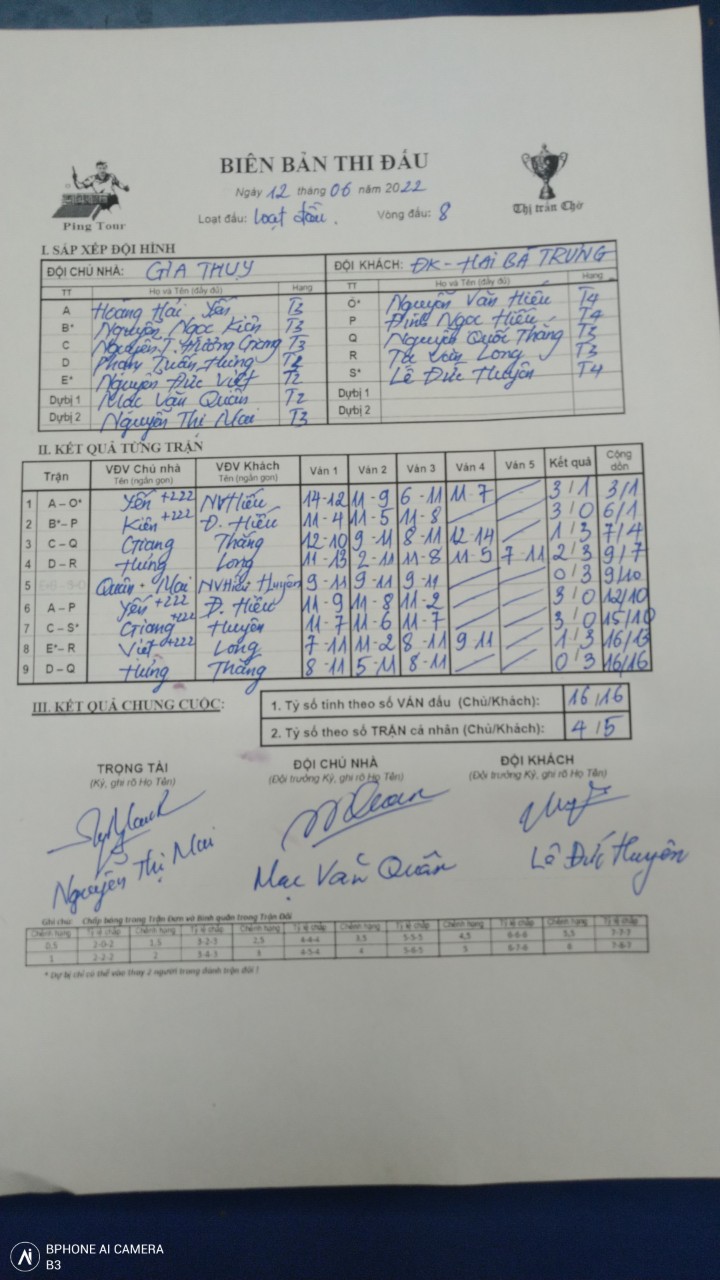 BIÊN BẢN THI ĐẤU
Ngày 12 tháng 06 năm 2022
Ping Tour
Loạt đấu: Loạt đấu. Vòng đấu: 8
Thị trấn Chờ
I. SẮP XẾP ĐỘI HÌNH
ĐỘI CHỦ NHÀ: GIA THUỴ ĐỘI KHÁCH: ĐK - HAI BÀ TRƯNG
TT Họ và Tên (đầy đủ) Hạng TT Họ và Tên (đầy đủ) Hạng
A Hoàng Hải Yến T3 O* Nguyễn Văn Hiếu T4
B* Nguyễn Ngọc Kiên T3 P Đinh Ngọc Hiếu T4
C Nguyễn T. Hương Giang T3 Q Nguyễn Quốc Thắng T3
D Phạm Tuấn Hưng T2 R Tạ Long T3
E* Nguyễn Đức Việt T2 S* Lê Đức Huyên T4
Dựbị 1 Mạc Văn Quân T2 Dựbị 1
Dựbị 2 Nguyễn Thị Mai T3 Dựbị 2
II. KẾT QUẢ TỪNG TRẬN
Trận VĐV Chủ nhà Tên (ngắn gọn) VĐV Khách Tên (ngắn gọn) Ván 1 Ván 2 Ván 3 Ván 4 Ván 5 Kết quả Cộng dồn
1 A – O* Yến +222 NVHiếu 14-12 11-9 6-11 11-7 3/1 3/1
2 B*– P Kiên +222 Đ. Hiếu 11-4 11-5 11-8 3/0 6/1
3 C – Q Giang Thắng 12-10 9-11 8-11 12-14 1/3 7/4
4 D – R Hưng Long 11-13 2-11 11-8 11-5 7-11 2/3 9/7
5 Quân + Mai NVHiếu Huyên 9-11 9-11 9-11 0/3 9/10
6 A – P Yến +222 Đ. Hiếu 11-9 11-8 11-2 3/0 12/10
7 C – S* Giang +222 Huyên 11-7 11-6 11-7 3/0 15/10
8 E*– R Việt +222 Long 7-11 11-2 8-11 9-11 1/3 16/13
9 D – Q Hưng Thắng 8-11 5-11 8-11 0/3 16/16
III. KẾT QUẢ CHUNG CUỘC:
1. Tỷ số tính theo số VÁN đấu (Chủ/Khách): 16/16
2. Tỷ số theo số TRẬN cá nhân (Chủ/Khách): 4/5
TRỌNG TÀI ĐỘI CHỦ NHÀ ĐỘI KHÁCH
(Ký, ghi rõ Họ Tên) (Đội trưởng Ký, ghi rõ Họ Tên) (Đội trưởng Ký, ghi rõ Họ Tên)
Nguyễn Thị Mai Mạc Văn Quân Lê Đức Huyên
Ghi chú: Chấp bóng trong Trận Đơn và Bình quân trong Trận Đôi
Chênh hạng Tỷ lệ chấp Chênh hạng Tỷ lệ chấp Chênh hạng Tỷ lệ chấp Chênh hạng Tỷ lệ chấp Chênh hạng Tỷ lệ chấp Chênh hạng Tỷ lệ chấp
0,5 2-0-2 1,5 3-2-3 2,5 4-4-4 3,5 5-5-5 4,5 6-6-6 5,5 7-7-7
1 2-2-2 2 3-4-3 3 4-5-4 4 5-6-5 5 6-7-6 6 7-8-7
* Dự bị chỉ có thể vào thay 2 người trong đánh trận đôi !
BPHONE AI CAMERA
B3